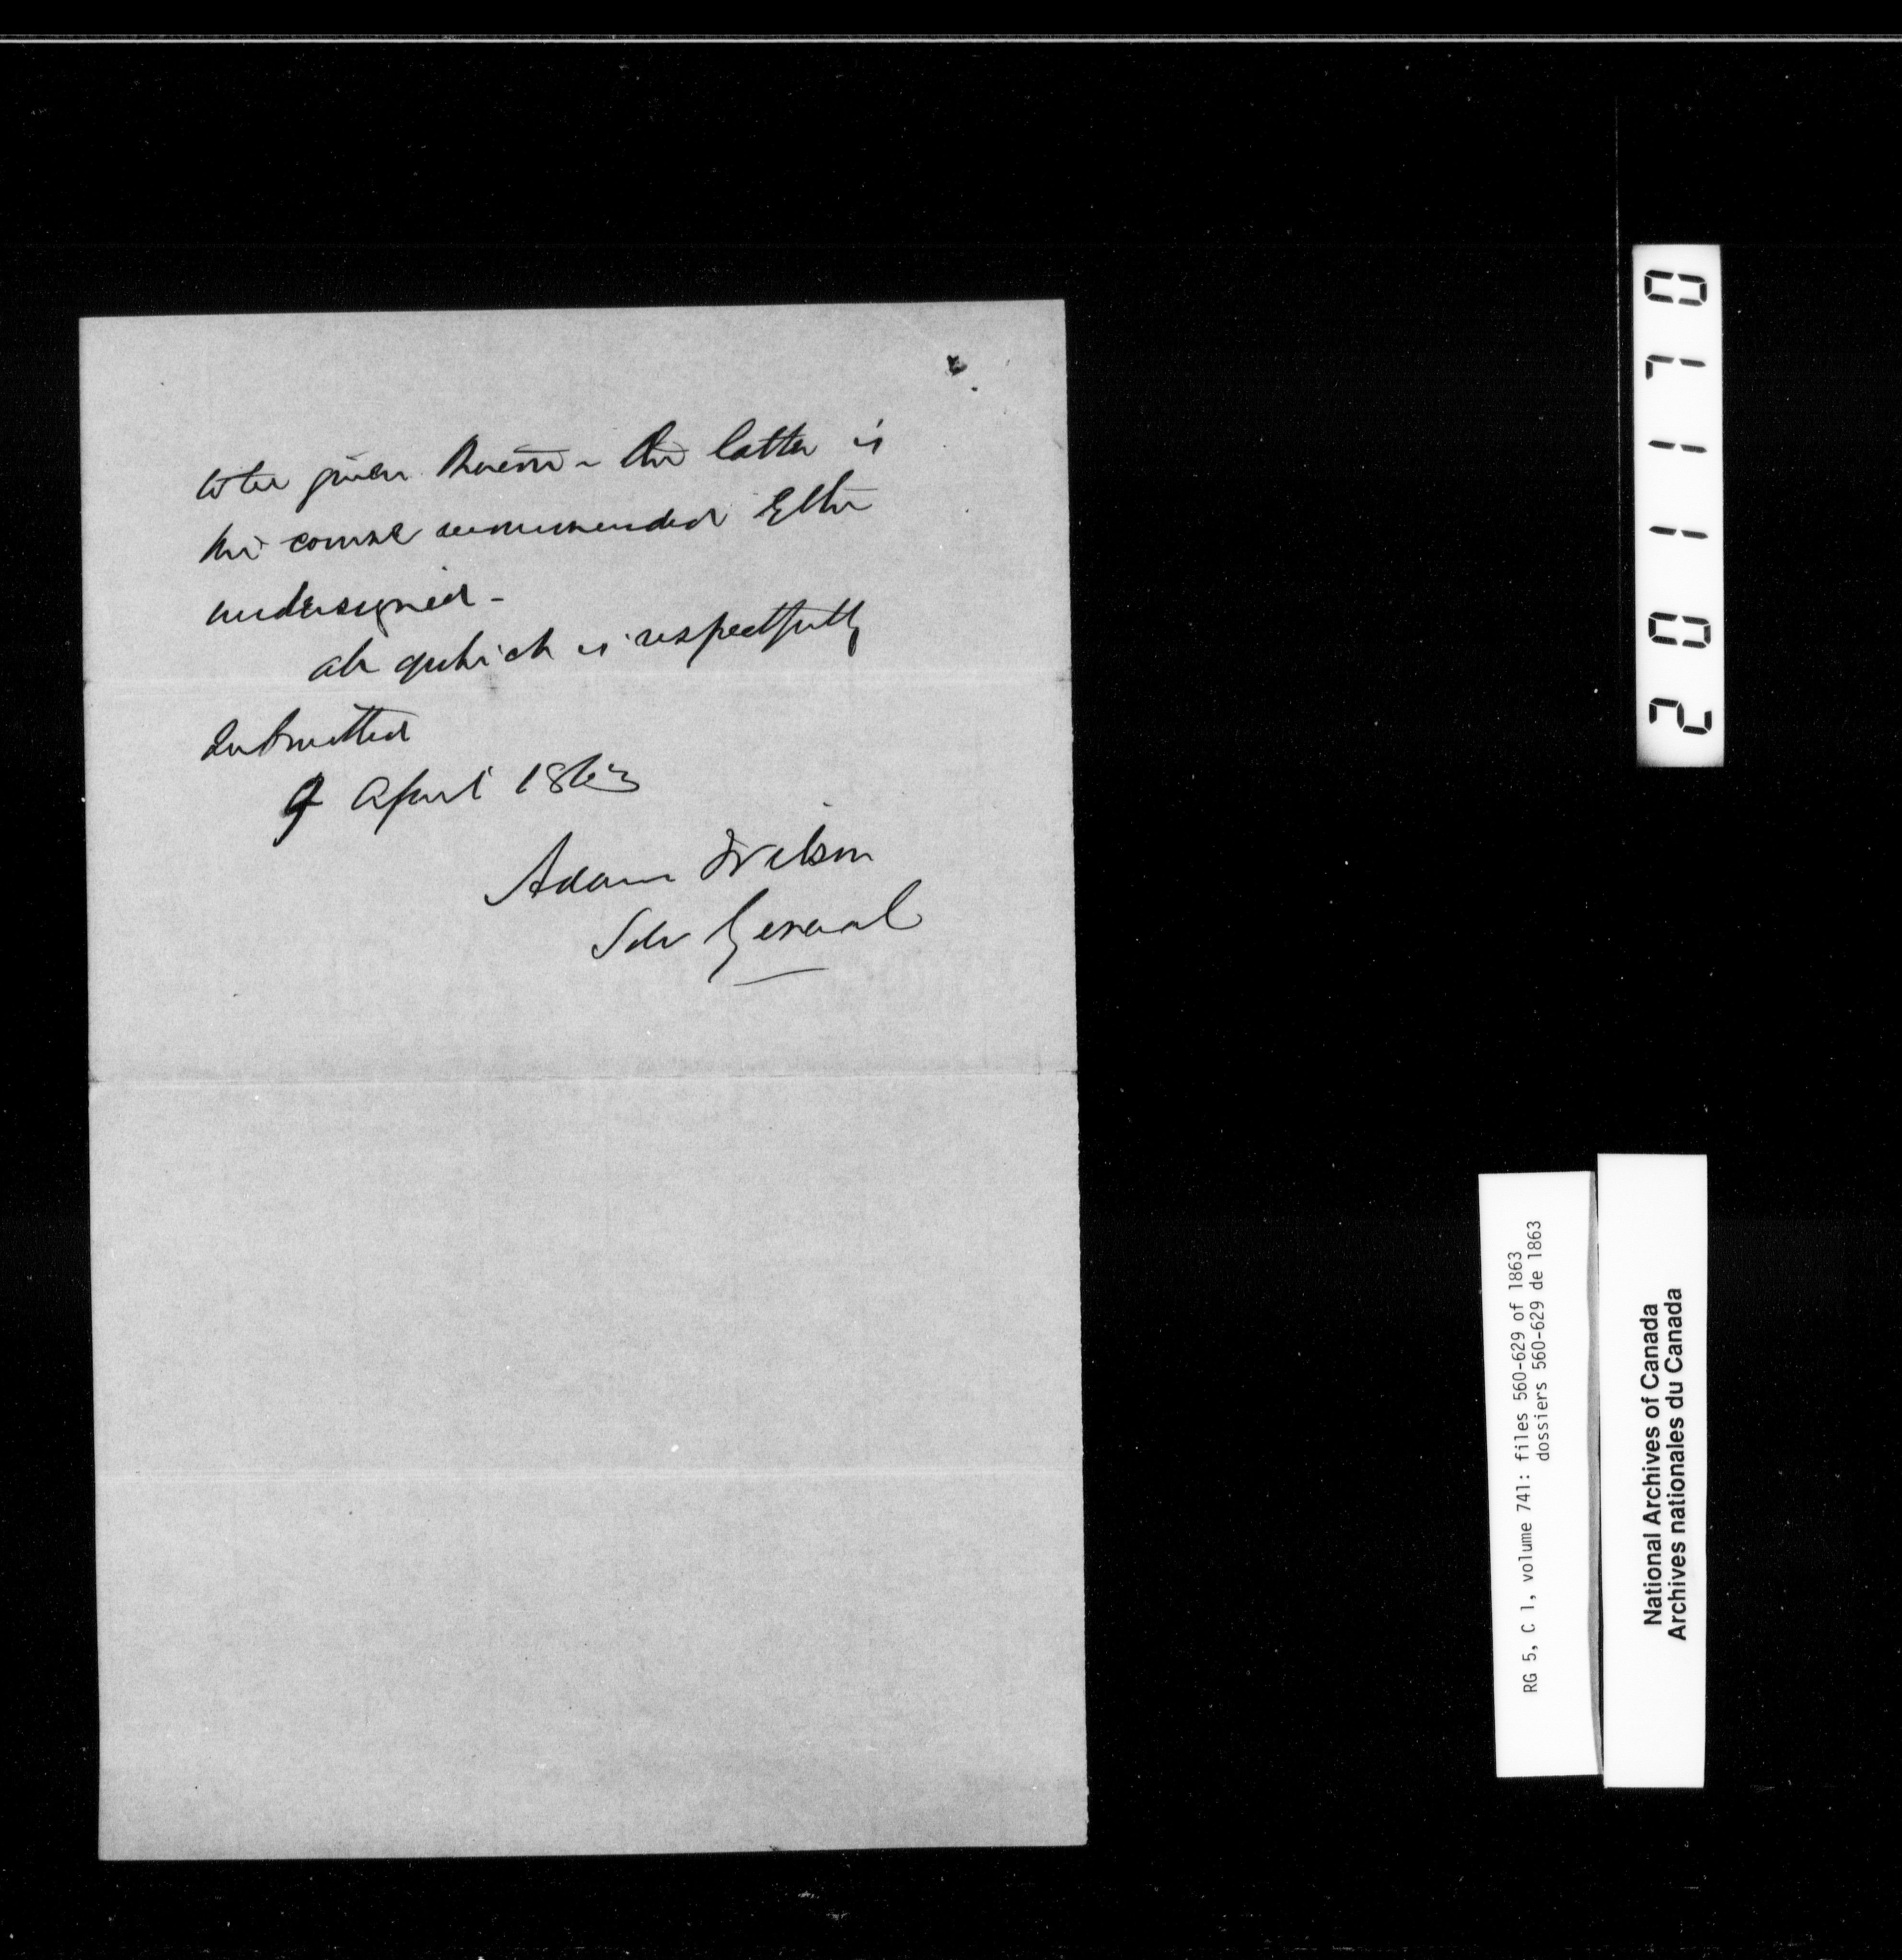 to be given therein – the latter is
the course recommended by the
undersigned –
all of which is respectfully
Submitted
9 April 1863
Adam Wilson
Solr General
201170
RG 5, C 1, volume 741: files 560-629 of 1863
dossiers 560-629 de 1863
National Archives of Canada
Archives nationales du Canada